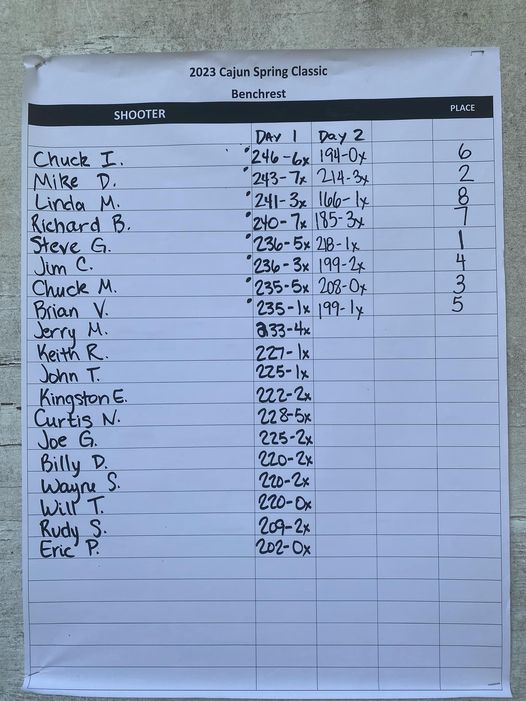 2023 Cajun Spring Classic
Benchrest
SHOOTER PLACE
DAY 1 Day 2
Chuck I. 246-6x 194-0x 6
Mike D. 243-7x 214-3x 2
Linda M. 241-3x 166-1x 8
Richard B. 240-7x 185-3x 7
Steve G. 236-5x 218-1x 1
Jim C. 236-3x 199-2x 4
Chuck M. 235-5x 208-0x 3
Brian V. 235-1x 199-1x 5
Jerry M. 233-4x
Keith R. 227-1x
John T. 225-1x
Kingston E. 222-2x
Curtis N. 228-5x
Joe G. 225-2x
Billy D. 220-2x
Wayne S. 220-2x
Will T. 220-0x
Rudy S. 209-2x
Eric P. 202-0x